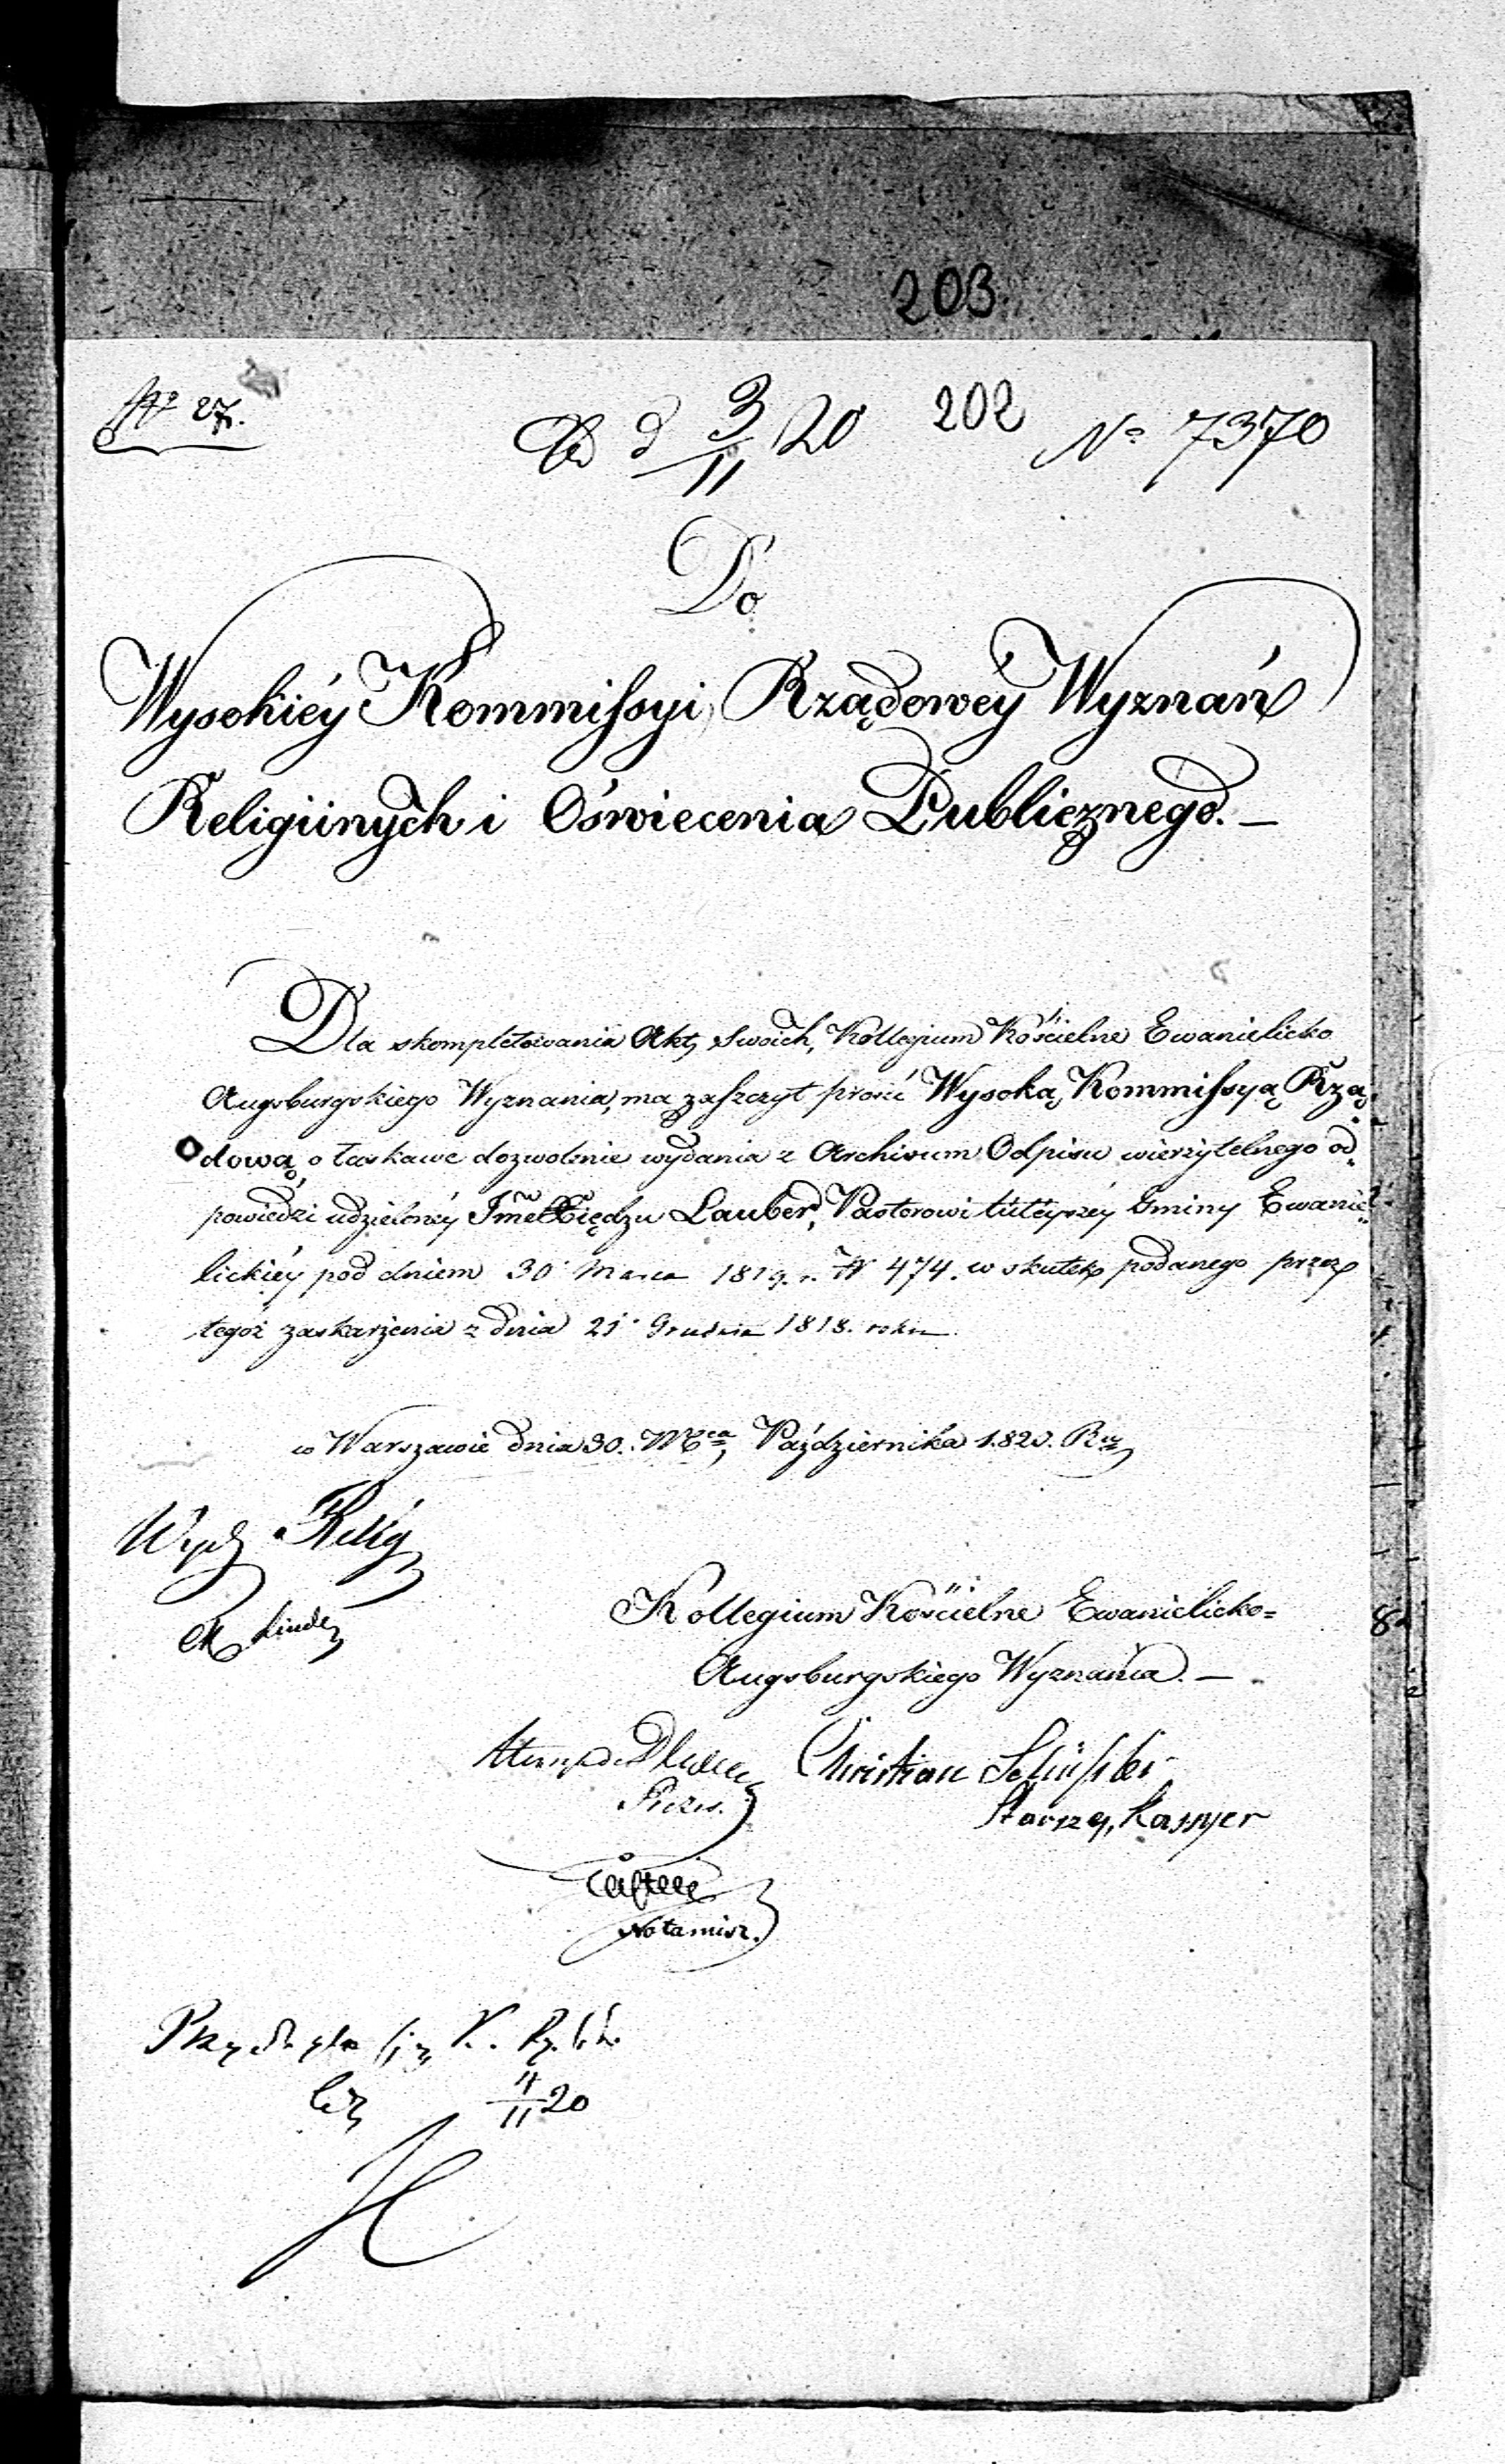 203
Nº 27.
d 3/11 20 202 Nº 7370
Do
Wysokiéy Kommissyi Rządowéy Wyznań
Religiinych i Oświecenia Publicznego. —
Dla skompletowania Akt, Swoich, Kollegium Kościelne Ewanielicko
Augsburgskiego Wyznania, ma zaszczyt prosić Wysoką Kommissyą Rzą,
dową, o łaskawe dozwolenie wydania z Archivum Odpisu wierzytelnego od,
powiedzi udzielonéy Xiędzu Lauber, Pastorowi tuteyszéy Gminy Ewanie
lickiéy pod dniem 30 Marca 1819. r. Nº 474. w skutek podanego przez
tegoż zaskarżenia z dnia 21 Grudnia 1818. roku
w Warszawie dnia 30. Mca, Października 1.820. Ru
Wydz Relig
Linde
Kollegium Kościelne Ewanielicko=
Augsburgskiego Wyznania. —
Christian
Prezes.
Starszy, Kassyer
Notariusz.
4/11 20